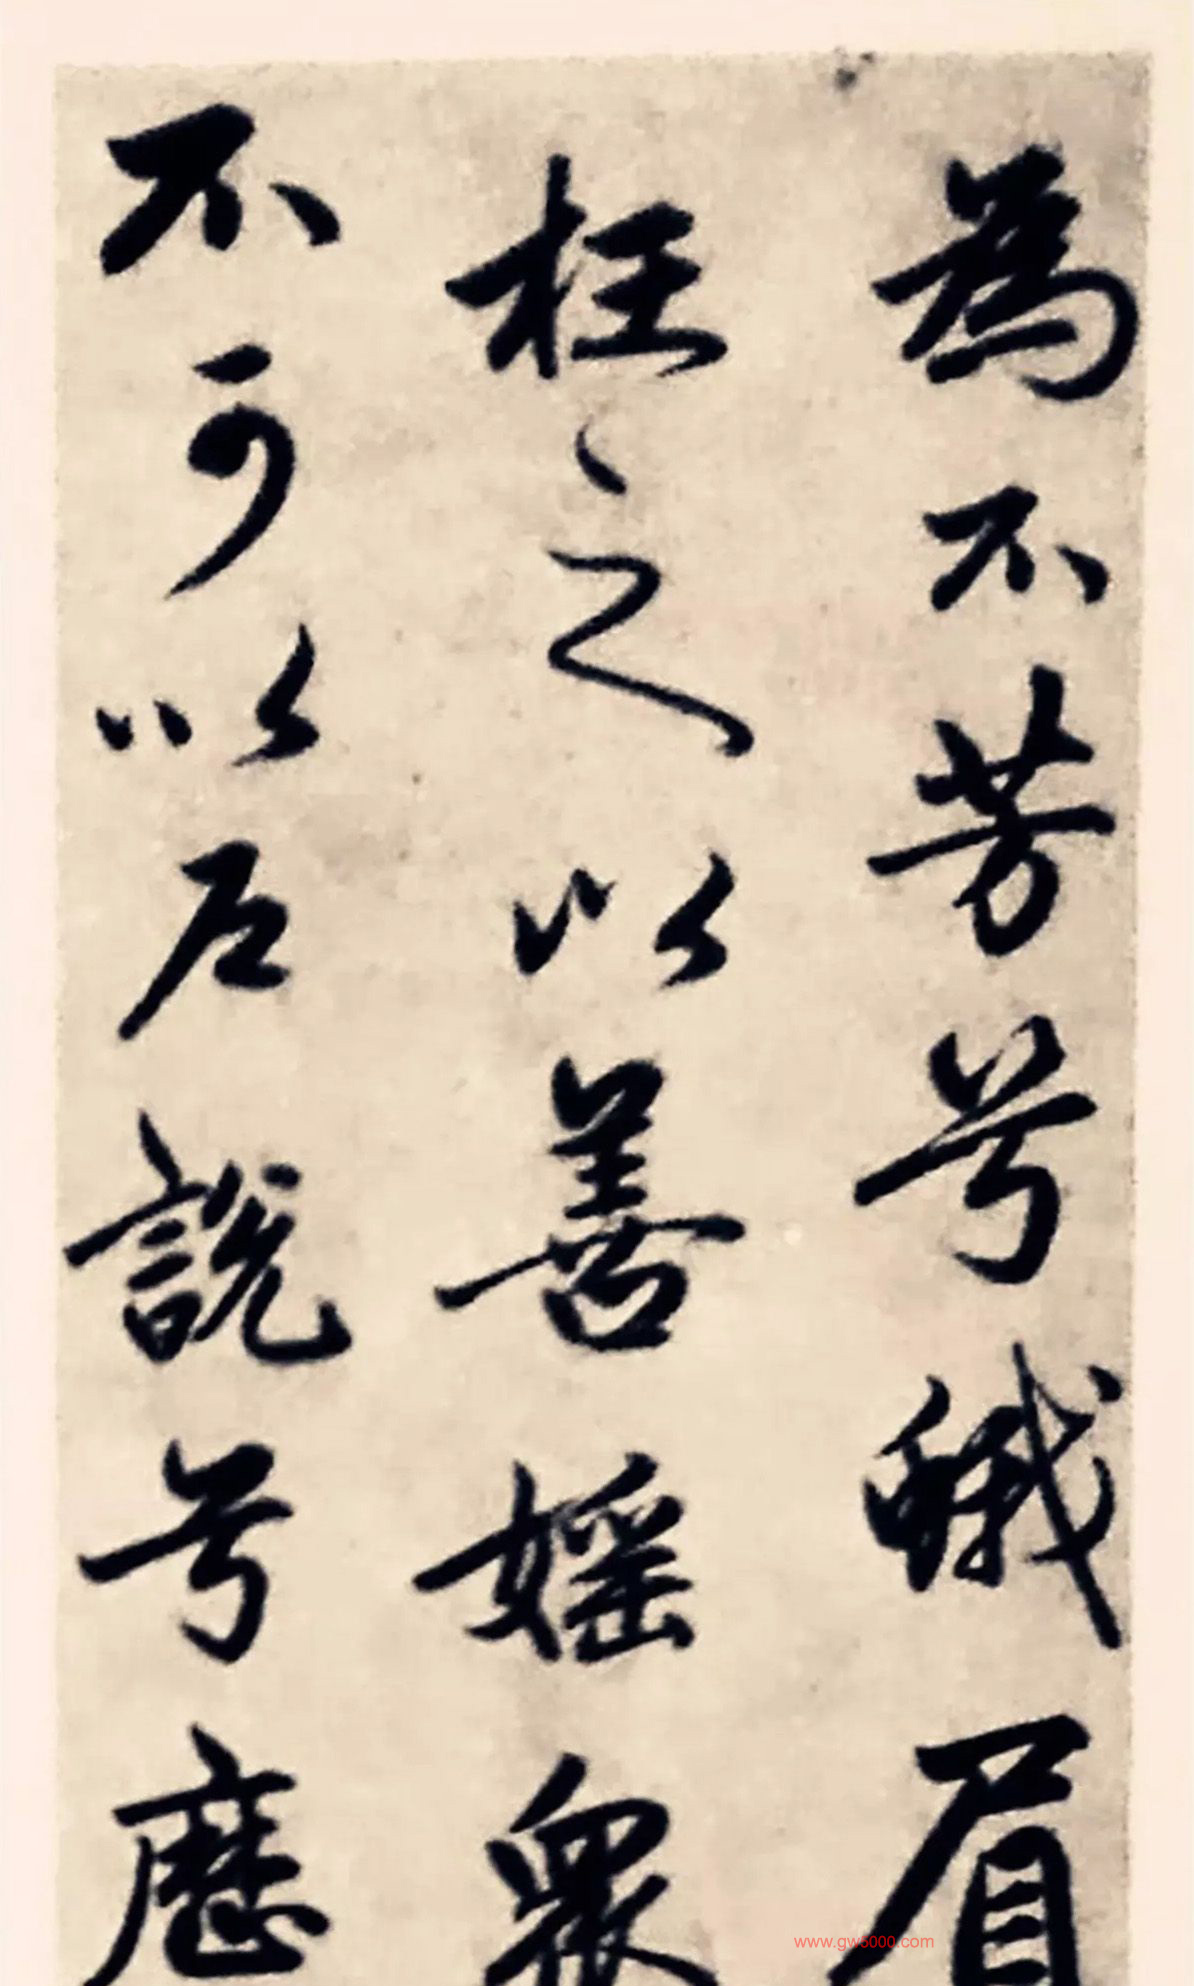 為不芳兮蛾眉
枉之以善媱衆
不可以戶說兮
www.gw5000.com